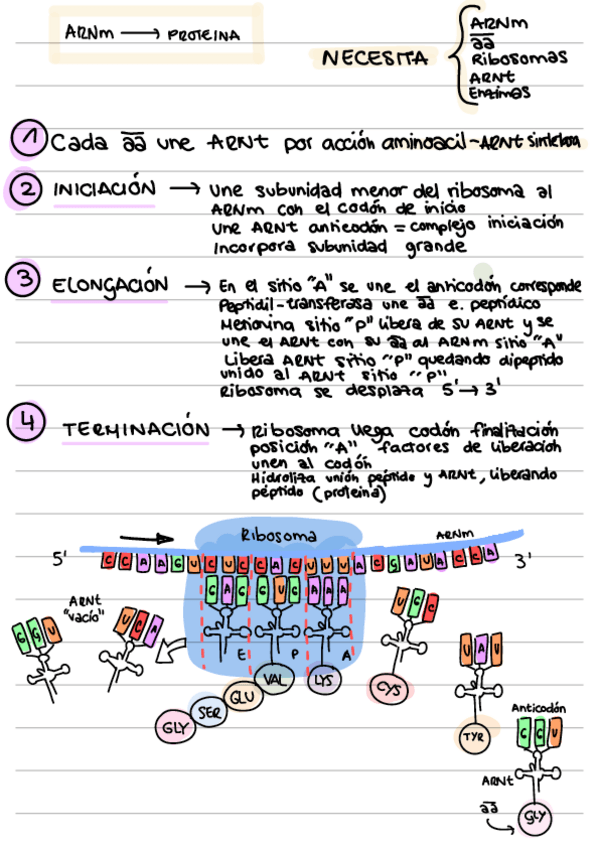 ARNm → PROTEINA
NECESITA
ARNm
aa
Ribosomas
ARNt
Enzimas
1 Cada aa une ARNt por acción aminoacil-ARNt sintetasa
2 INICIACIÓN → Une subunidad menor del ribosoma al
ARNm con el codón de inicio
Une ARNt anticodón = complejo iniciación
Incorpora subunidad grande
3 ELONGACIÓN → En el sitio "A" se une el anticodón corresponde
Peptidil-transferasa une aa e. peptídico
Metionina sitio "P" libera de su ARNt y se
une el ARNt con su aa al ARNm sitio "A"
Libera ARNt sitio "P" quedando dipeptido
unido al ARNt sitio "P"
Ribosoma se desplaza 5' → 3'
4 TERMINACIÓN → Ribosoma llega codón finalización
posición "A" factores de liberación
unen al codón
Hidroliza unión peptido y ARNt, liberando
péptido (proteina)
Ribosoma
ARNm
5' C C A A G U C U C C A C U U U A C G A U A C C A 3'
ARNt
"vacío"
G G U
U C A
G A G
G U G
A A A
U G C
U A U
E P A
VAL
LYS
GLU
SER
GLY
CYS
TYR
Anticodón
C C U
ARNt
aa
GLY